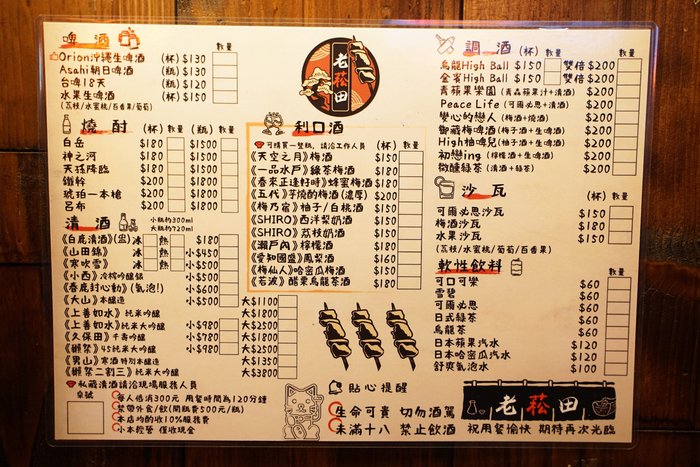 啤酒 數量
Orion沖繩生啤酒 (杯) $130
Asahi朝日啤酒 (瓶) $130
台啤18天 (瓶) $120
水果生啤酒 (杯) $150
(荔枝/水蜜桃/百香果/葡萄)
燒酎 (杯) 數量 (瓶) 數量
白岳 $180 $1500
神之河 $180 $1500
天孫降臨 $180 $1500
鐵幹 $200 $1800
琥珀一本槍 $200 $1800
呂布 $200 $1800
清酒 小瓶約300ml 大瓶約720ml 數量
《白鹿清酒》 冰 熱 $180
《山田錦》 冰 熱 小$450
《寒吹雪》 冰 熱 小$500
《小西》冷榨吟釀銘 小$500
《春鹿封心動》(氣泡!) 小$600
《大山》本釀造 大$1100
《上善如水》純米大吟釀 大$1800
《上善如水》純米吟釀 小$980 大$2500
《久保田》千壽吟釀 小$780 大$1800
《獺祭》45純米大吟釀 小$980 大$2500
《男山》寒酒特別本釀造 大$1350
《獺祭二割三》純米大吟釀 大$3800
私藏清酒請洽現場服務人員
桌號
每人低消300元 用餐時間為120分鐘
禁帶外食/飲(開瓶費500元/瓶)
本店均酌收10%服務費
小本經營 僅收現金
老菘田
利口酒
可購買一整瓶, 請洽工作人員 (杯) 數量
《天空之月》梅酒 $150
《一品水戶》綠茶梅酒 $180
《春來正逢好時》蜂蜜梅酒 $180
《五代》芋燒酌梅酒(濃厚) $200
《梅乃宿》柚子/白桃酒 $150
《SHIRO》西洋梨奶酒 $150
《SHIRO》荔枝奶酒 $150
《瀨戶內》檸檬酒 $180
《愛知國盛》鳳梨酒 $160
《梅仙人》哈密瓜梅酒 $150
《若波》醋栗烏龍茶酒 $180
貼心提醒
生命可貴 切勿酒駕
未滿十八 禁止飲酒
調酒 (杯) 數量 數量
烏龍High Ball $150 雙倍 $200
金賓High Ball $150 雙倍 $200
青蘋果樂園 (青森蘋果汁+清酒) $200
Peace Life (可爾必思+清酒) $200
變心的戀人 (梅酒+燒酒) $200
御藏梅啤酒 (梅子酒+生啤酒) $200
High柚啤兒 (柚子酒+生啤酒) $200
初戀ing (檸檬酒+生啤酒) $200
微醺綠茶 (清酒+綠茶) $200
沙瓦 (杯) 數量
可爾必思沙瓦 $150
梅酒沙瓦 $180
水果沙瓦 $150
(荔枝/水蜜桃/葡萄/百香果)
軟性飲料 數量
可口可樂 $60
雪碧 $60
可爾必思 $60
日式綠茶 $60
烏龍茶 $60
日本蘋果汽水 $120
日本哈密瓜汽水 $120
舒爽氣泡水 $100
老菘田
祝用餐愉快 期待再次光臨